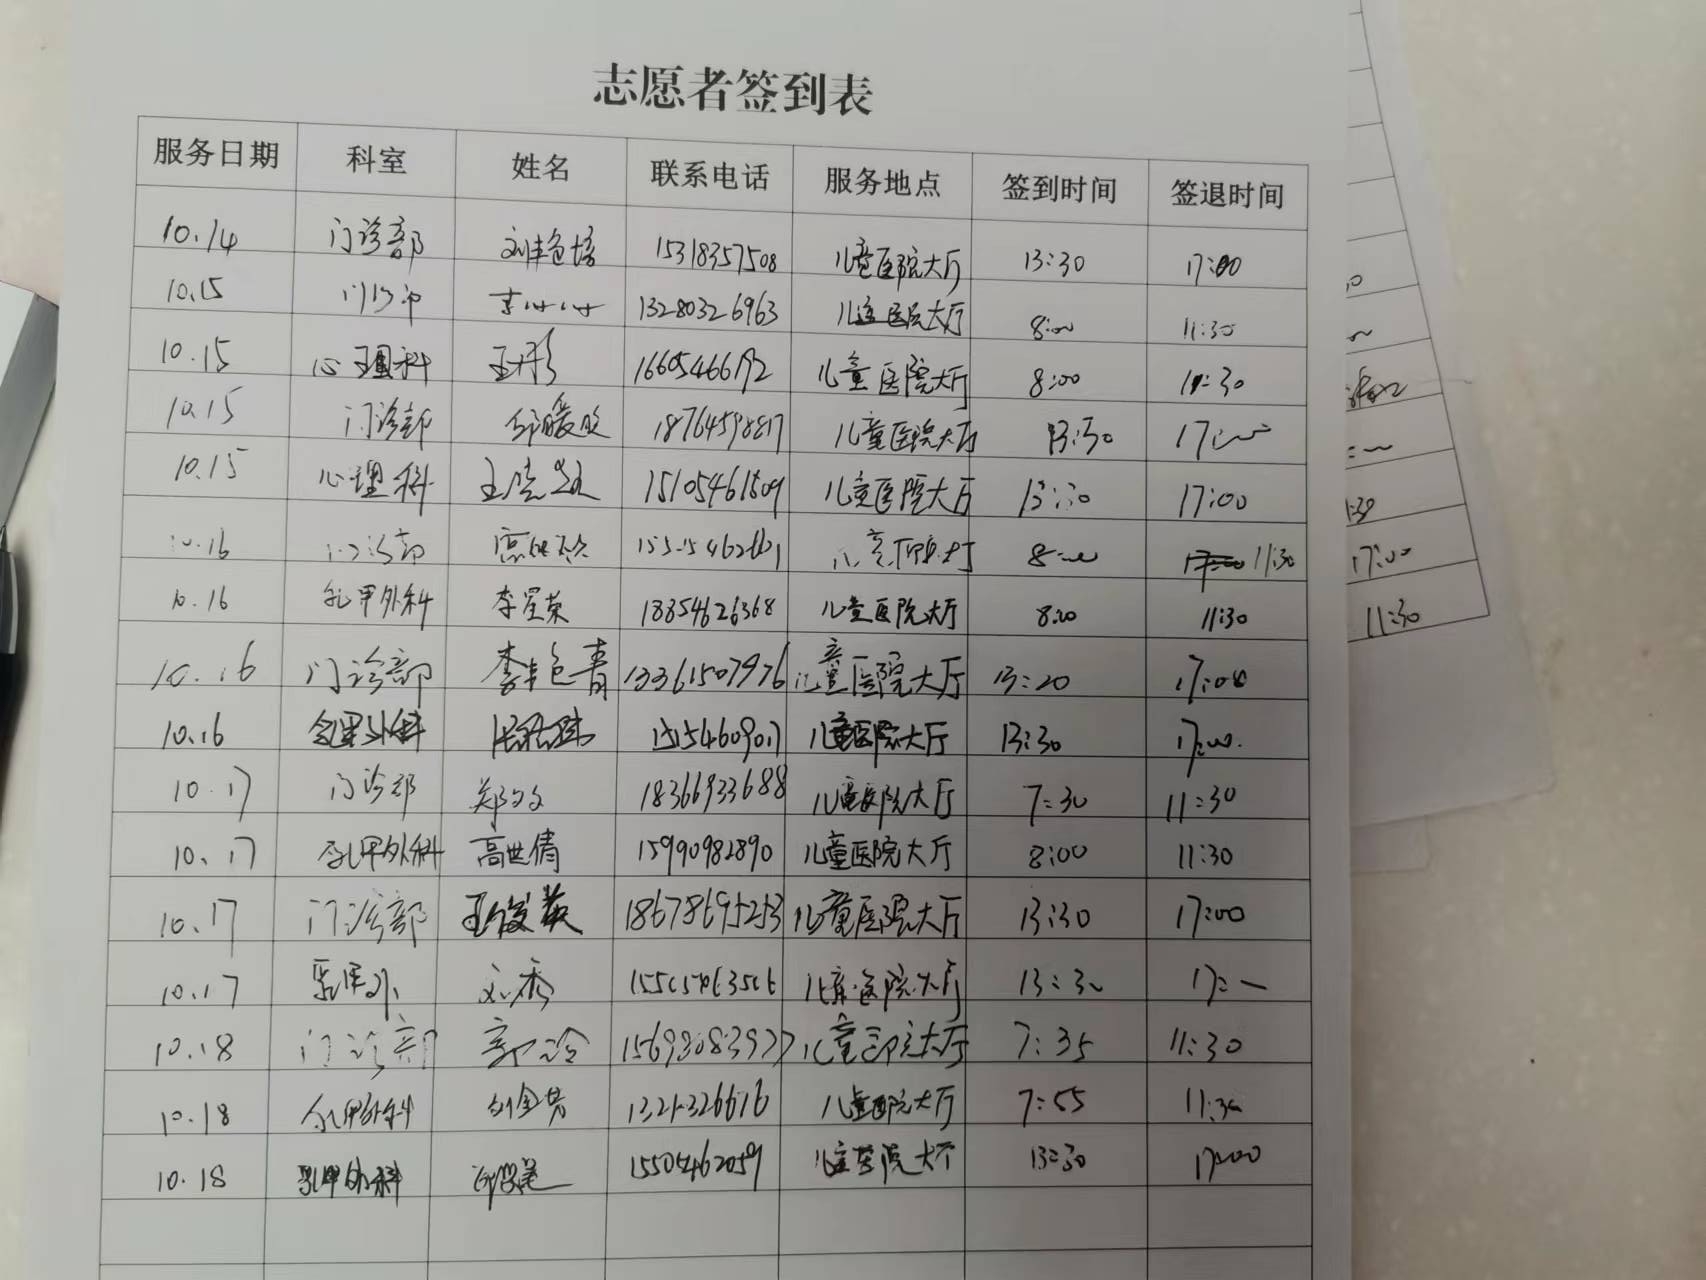 志愿者签到表
服务日期 科室 姓名 联系电话 服务地点 签到时间 签退时间
10.14 门诊部 刘艳培 15318357508 儿童医院大厅 13:30 17:00
10.15 门诊部 13280326963 儿童医院大厅 8:00 11:30
10.15 心理科 王彤 儿童医院大厅 8:00 11:30
10.15 门诊部 18764598817 儿童医院大厅 13:30 17:00
10.15 心理科 儿童医院大厅 13:30 17:00
10.16 门诊部 儿童医院大厅 8:00 11:30
10.16 乳甲外科 李星荣 18854626368 儿童医院大厅 8:00 11:30
10.16 门诊部 李艳青 13361507976 儿童医院大厅 13:20 17:00
10.16 乳甲外科 儿童医院大厅 13:30 17:00
10.17 门诊部 郑文文 18366933688 儿童医院大厅 7:30 11:30
10.17 乳甲外科 高世倩 15990982890 儿童医院大厅 8:00 11:30
10.17 门诊部 王俊英 18678695253 儿童医院大厅 13:30 17:00
10.17 乳甲外 刘秀 儿童医院大厅 13:30 17:
10.18 门诊部 郭冷 儿童医院大厅 7:35 11:30
10.18 乳甲外科 刘金芳 儿童医院大厅 7:55 11:30
10.18 乳甲外科 15505462059 儿童医院大厅 13:30 17:00
17:00
11:30